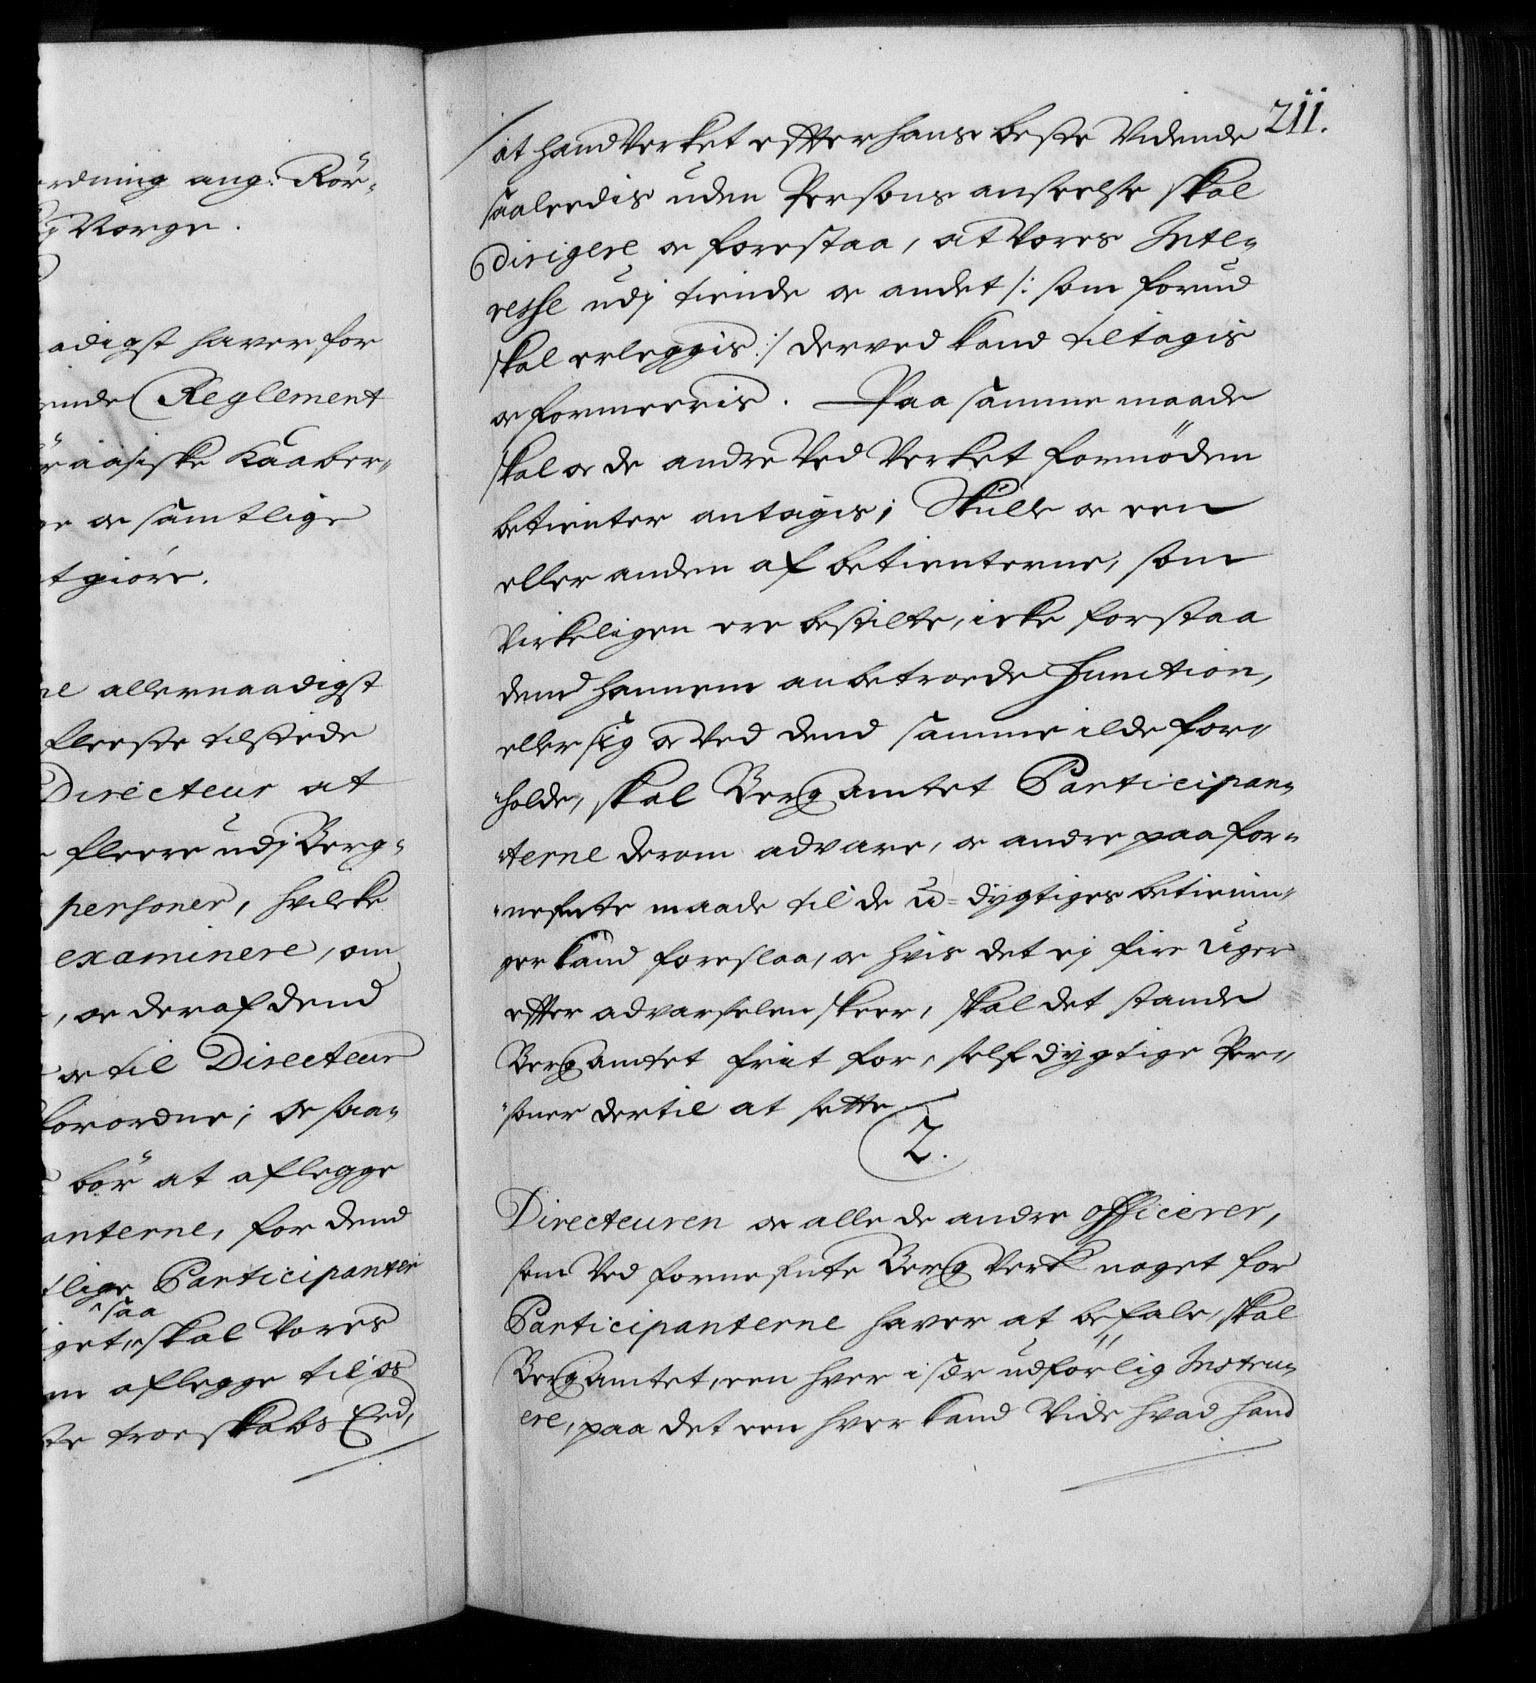 ordning ang: Rör-
Norge.
adigst haver for
Reglement
råasiske Kaaber-
oc samtlige
tgiöre.
allernaadigst
fleeste tilstede
Directeur at
fleere udj Berg-
personer, hvilke
examinere, om
, oc deraf dend
oc til Directeur
forordne; oc saa-
bör at aflegge
anterne, for dend
tlige Participanter
saa
get, skal Vores
aflegge til os
troeskabs Eed,
211.
at hand Verket effter hans beste Vidende
saaleedis uden Persons anseelse skal
dirigere oc forestaa, at Vores Inte-
resse udj tiende oc andet /: som forud
skal erleggis :/ derved kand tiltagis
oc formeeris. Paa samme maade
skal oc de andre Ved Verket fornöden
betienter antagis; Skulle oc een
eller anden af betienterne, som
Virkeligen ere bestilte, icke forstaa
dend hannem anbetroede Function,
eller sig oc Ved dend samme ilde for-
holde, skal Bergamtet Participan-
terne derom advare, oc andre paa for-
nefnte maade til de u-dygtiges betienin-
ger kand foreslaa, oc hvis det ej fire Uger
effter advarselen skeer, skal det stande
Bergamtet friit for, self dygtige Per-
soner dertil at sette
2.
Directeuren oc alle de andre officerer,
som Ved fornefnte Berg Verk noget for
Participanterne haver at befale, skal
Bergamtet, een hver i sær udförlig Instru-
ere, paa det een hver kand Vide hvad hand